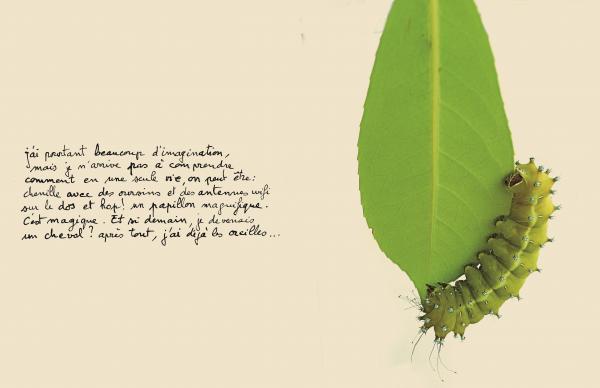 j'ai pourtant beaucoup d'imagination,
mais je n'arrive pas à comprendre
comment en une seule vie, on peut être :
chenille avec des oursins et des antennes wifi
sur le dos et hop! un papillon magnifique.
C'est magique. Et si demain, je devenais
un cheval ? après tout, j'ai déjà les oreilles...